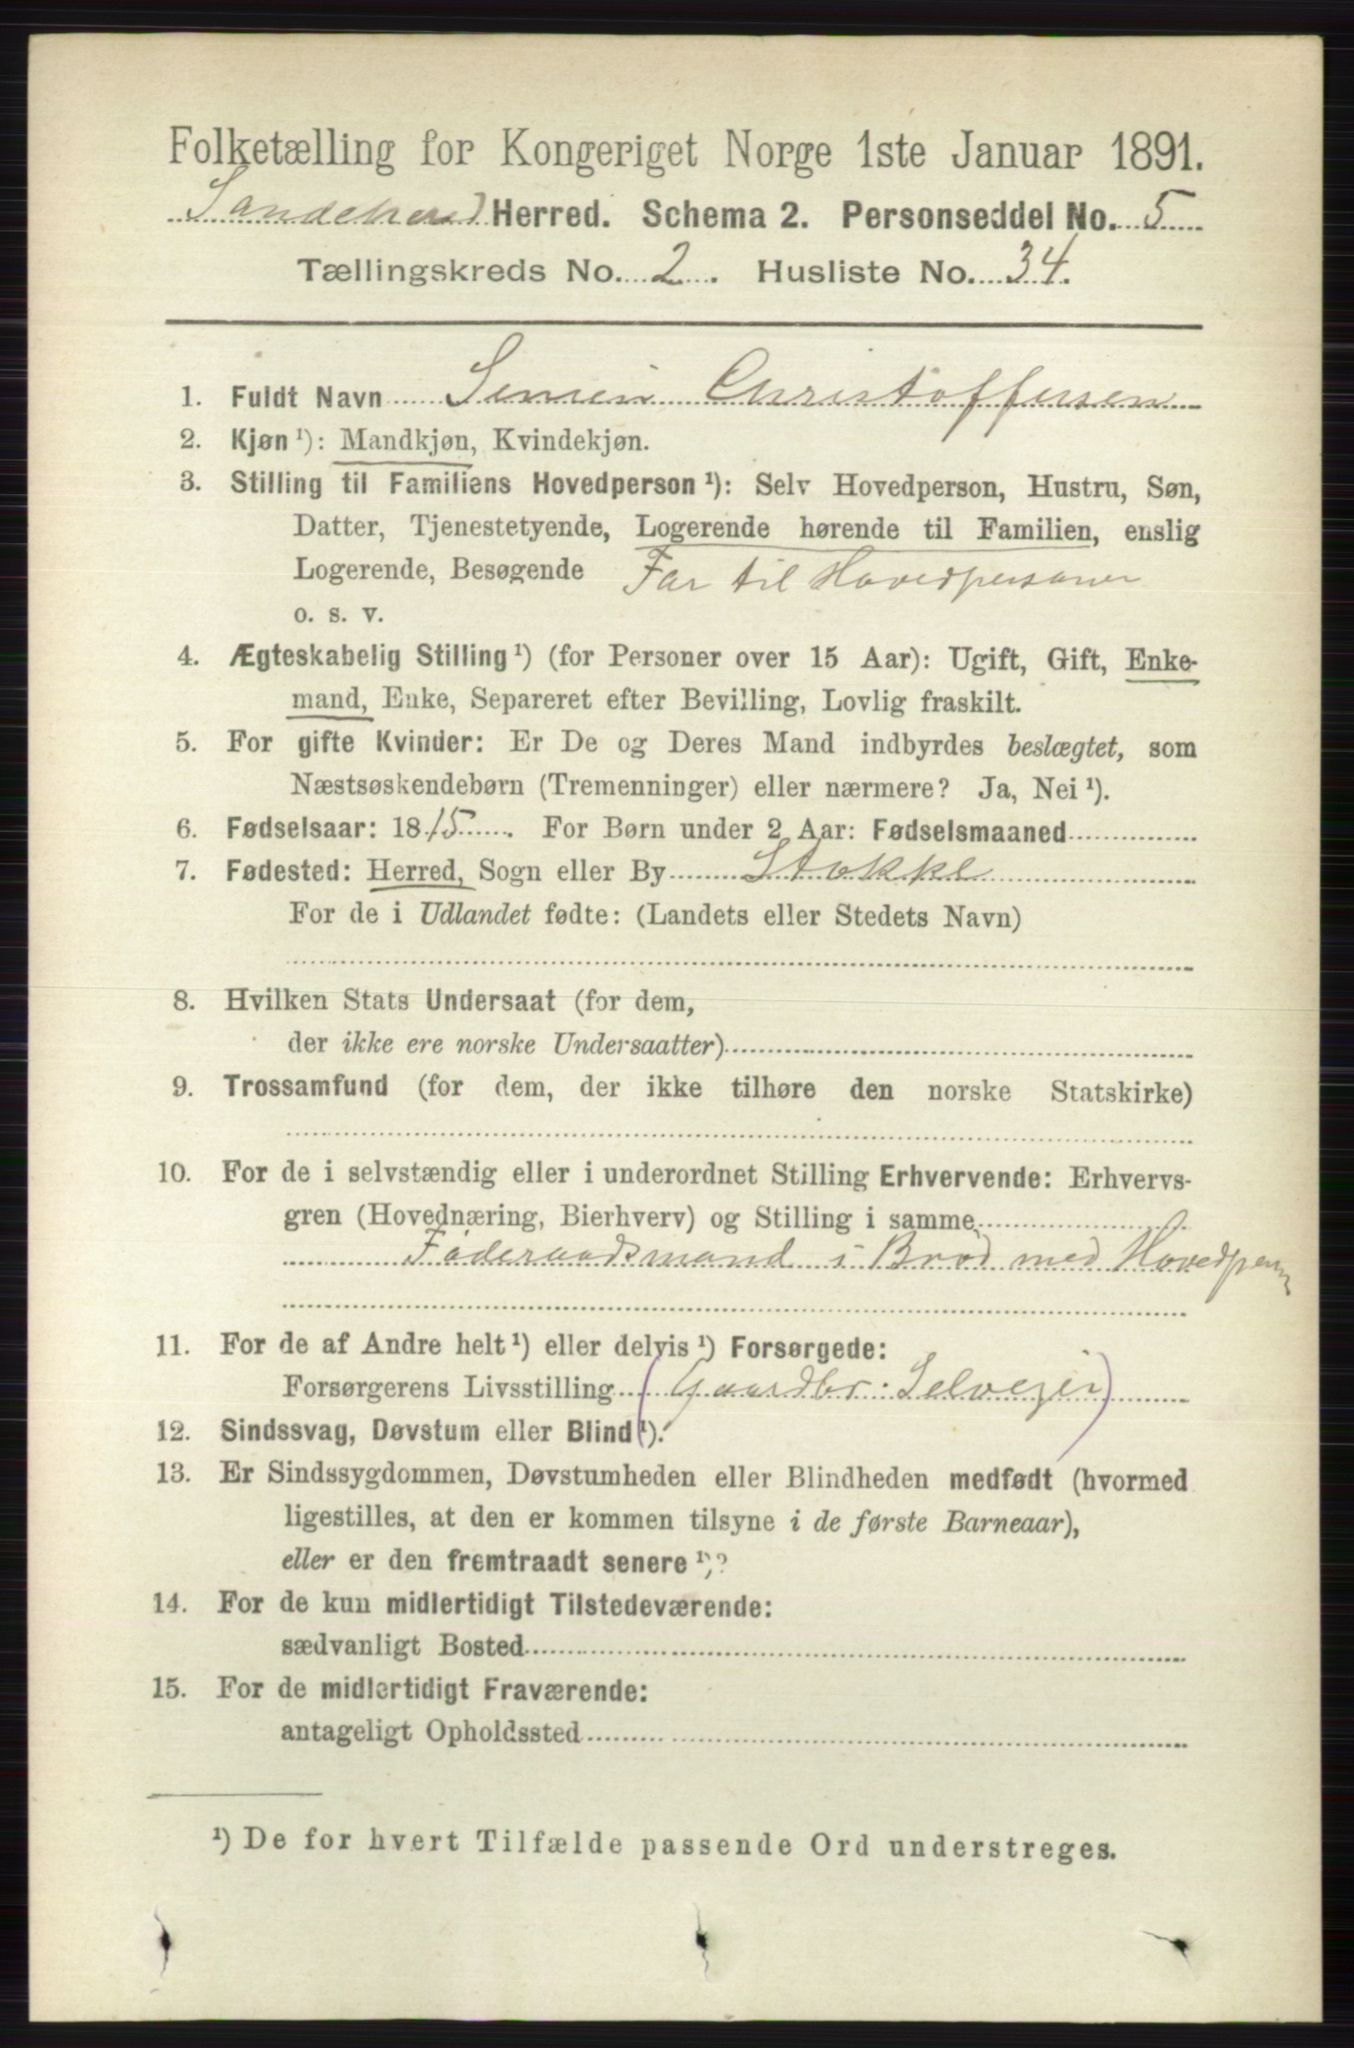 Folketælling for Kongeriget Norge 1ste Januar 1891.
Sandeherred Herred. Schema 2. Personseddel No. 5
Tællingskreds No. 2. Husliste No. 34.
1. Fuldt Navn Simen Christoffersen
2. Kjøn ¹): Mandkjøn, Kvindekjøn.
3. Stilling til Familiens Hovedperson ¹): Selv Hovedperson, Hustru, Søn,
Datter, Tjenestetyende, Logerende hørende til Familien, enslig
Logerende, Besøgende Far til Hovedpersonen
o. s. v.
4. Ægteskabelig Stilling ¹) (for Personer over 15 Aar): Ugift, Gift, Enke-
mand, Enke, Separeret efter Bevilling, Lovlig fraskilt.
5. For gifte Kvinder: Er De og Deres Mand indbyrdes beslægtet, som
Næstsøskendebørn (Tremenninger) eller nærmere? Ja, Nei ¹).
6. Fødselsaar: 1815. For Børn under 2 Aar: Fødselsmaaned
7. Fødested: Herred, Sogn eller By Stokke
For de i Udlandet fødte: (Landets eller Stedets Navn)
8. Hvilken Stats Undersaat (for dem,
der ikke ere norske Undersaatter)
9. Trossamfund (for dem, der ikke tilhøre den norske Statskirke)
10. For de i selvstændig eller i underordnet Stilling Erhvervende: Erhvervs-
gren (Hovednæring, Bierhverv) og Stilling i samme
Føderaadsmand i Brød med Hovedpersn
11. For de af Andre helt ¹) eller delvis ¹) Forsørgede:
Forsørgerens Livsstilling (Gaardbr: Selveier)
12. Sindssvag, Døvstum eller Blind ¹).
13. Er Sindssygdommen, Døvstumheden eller Blindheden medfødt (hvormed
ligestilles, at den er kommen tilsyne i de første Barneaar),
eller er den fremtraadt senere ¹)?
14. For de kun midlertidigt Tilstedeværende:
sædvanligt Bosted
15. For de midlertidigt Fraværende:
antageligt Opholdssted
¹) De for hvert Tilfælde passende Ord understreges.